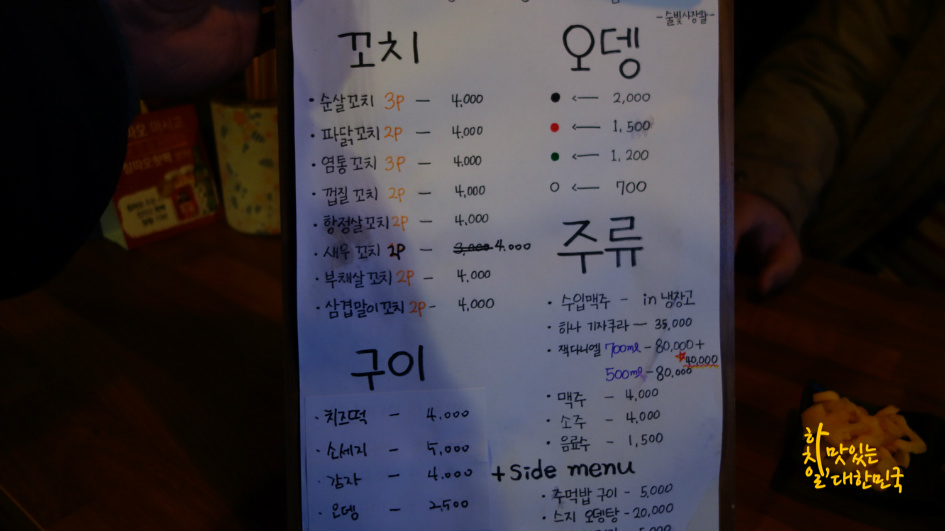 -술빛시장활-
꼬치
· 순살꼬치 3P — 4,000
· 파닭꼬치 2P — 4,000
· 염통꼬치 3P — 4,000
· 껍질꼬치 2P — 4,000
· 항정살꼬치 2P — 4,000
· 새우꼬치 2P — 3,000 4,000
· 부채살꼬치 2P — 4,000
· 삼겹말이꼬치 2P - 4,000
구이
· 치즈떡 — 4,000
· 소세지 — 5,000
· 감자 — 4,000
· 오뎅 — 2,500
오뎅
● ← 2,000
● ← 1,500
● ← 1,200
○ ← 700
주류
· 수입맥주 - in 냉장고
· 하나 기자쿠라 — 35,000
· 잭다니엘 700ml - 80,000+
★40,000
500ml - 80,000
· 맥주 - 4,000
· 소주 - 4,000
· 음료수 - 1,500
+Side menu
· 주먹밥 구이 - 5,000
· 스지 오뎅탕 - 20,000
5,000
하창일,
맛있는
대한민국